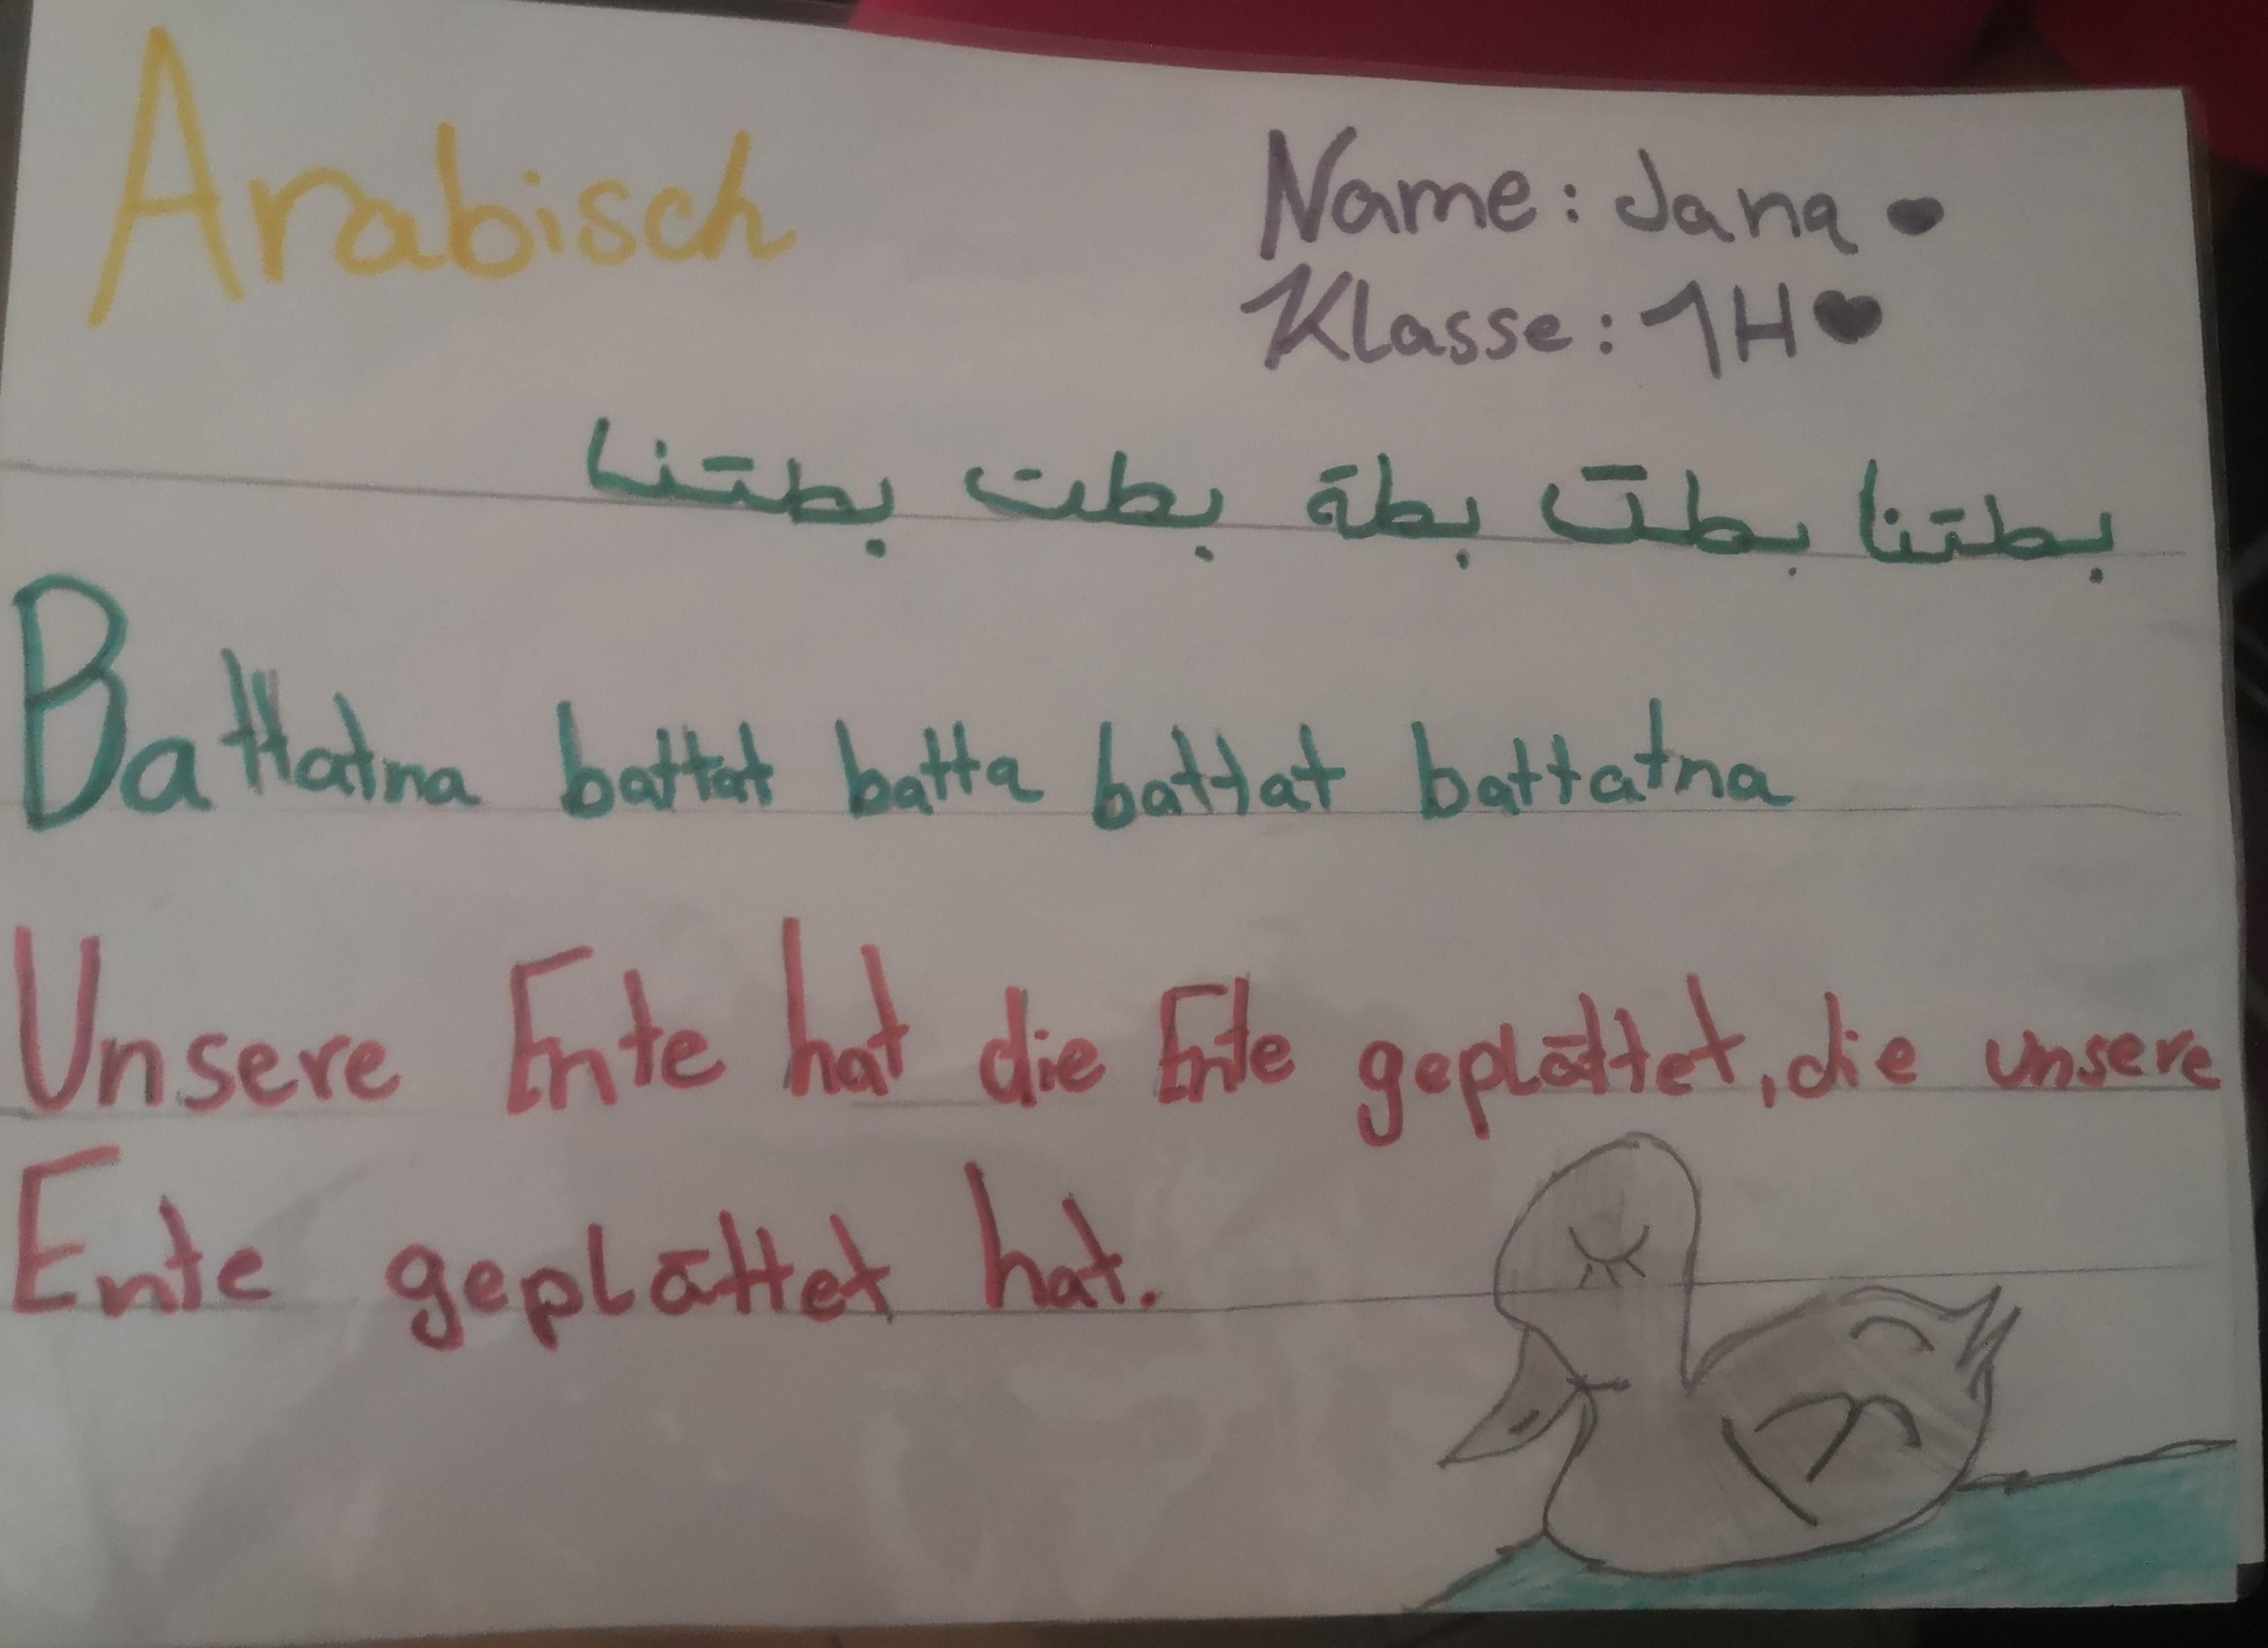 Arabisch
Name: Jana ♥
Klasse: 1H ♥
بطتنا بطت بطة بطت بطتنا
Battatna battat batta battat battatna
Unsere Ente hat die Ente geplättet, die unsere
Ente geplättet hat.